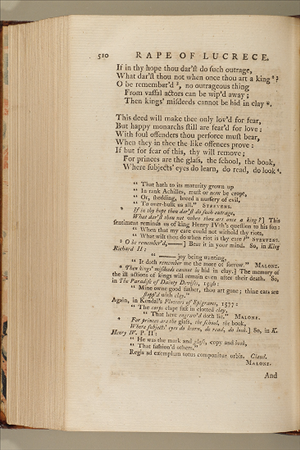 510 RAPE OF LUCRECE.
If in thy hope thou dar'st do such outrage,
What dar'st thou not when once thou art a king ²?
O be remember'd ³, no outrageous thing
From vassal actors can be wip'd away;
Then kings' misdeeds cannot be hid in clay ⁴.
This deed will make thee only lov'd for fear,
But happy monarchs still are fear'd for love:
With foul offenders thou perforce must bear,
When they in thee the like offences prove:
If but for fear of this, thy will remove;
For princes are the glass, the school, the book,
Where subjects' eyes do learn, do read, do look ⁵.
" That hath to its maturity grown up
" In rank Achilles, must or now be cropt,
" Or, shedding, breed a nursery of evil,
" To over-bulk us all." STEEVENS.
If in thy hope thou dar'st do such outrage,
What dar'st thou not when thou art once a king?] This
sentiment reminds us of king Henry IVth's question to his son:
" When that my care could not withold thy riots,
" What wilt thou do when riot is thy care?" STEEVENS.
³ O be remember'd,——] Bear it in your mind. So, in King
Richard II:
" ——joy being wanting,
" It doth remember me the more of sorrow." MALONE.
⁴ Then kings' misdeeds cannot be hid in clay.] The memory of
the ill actions of kings will remain even after their death. So,
in The Paradise of Daintie Devises, 1596:
" Mine owne good father, thou art gone; thine ears are
stopp'd with clay."
Again, in Kendal's Flowers of Epigrams, 1577:
" The corps clapt fast in clotter'd clay,
" That here engrav'd doth lie." MALONE.
⁵ For princes are the glass, the school, the book,
Where subjects' eyes do learn, do read, do look.] So, in K.
Henry IV. P. II:
" He was the mark and glass, copy and book,
" That fashion'd others."
Regis ad exemplum totus componitur orbis. Claud.
MALONE.
And